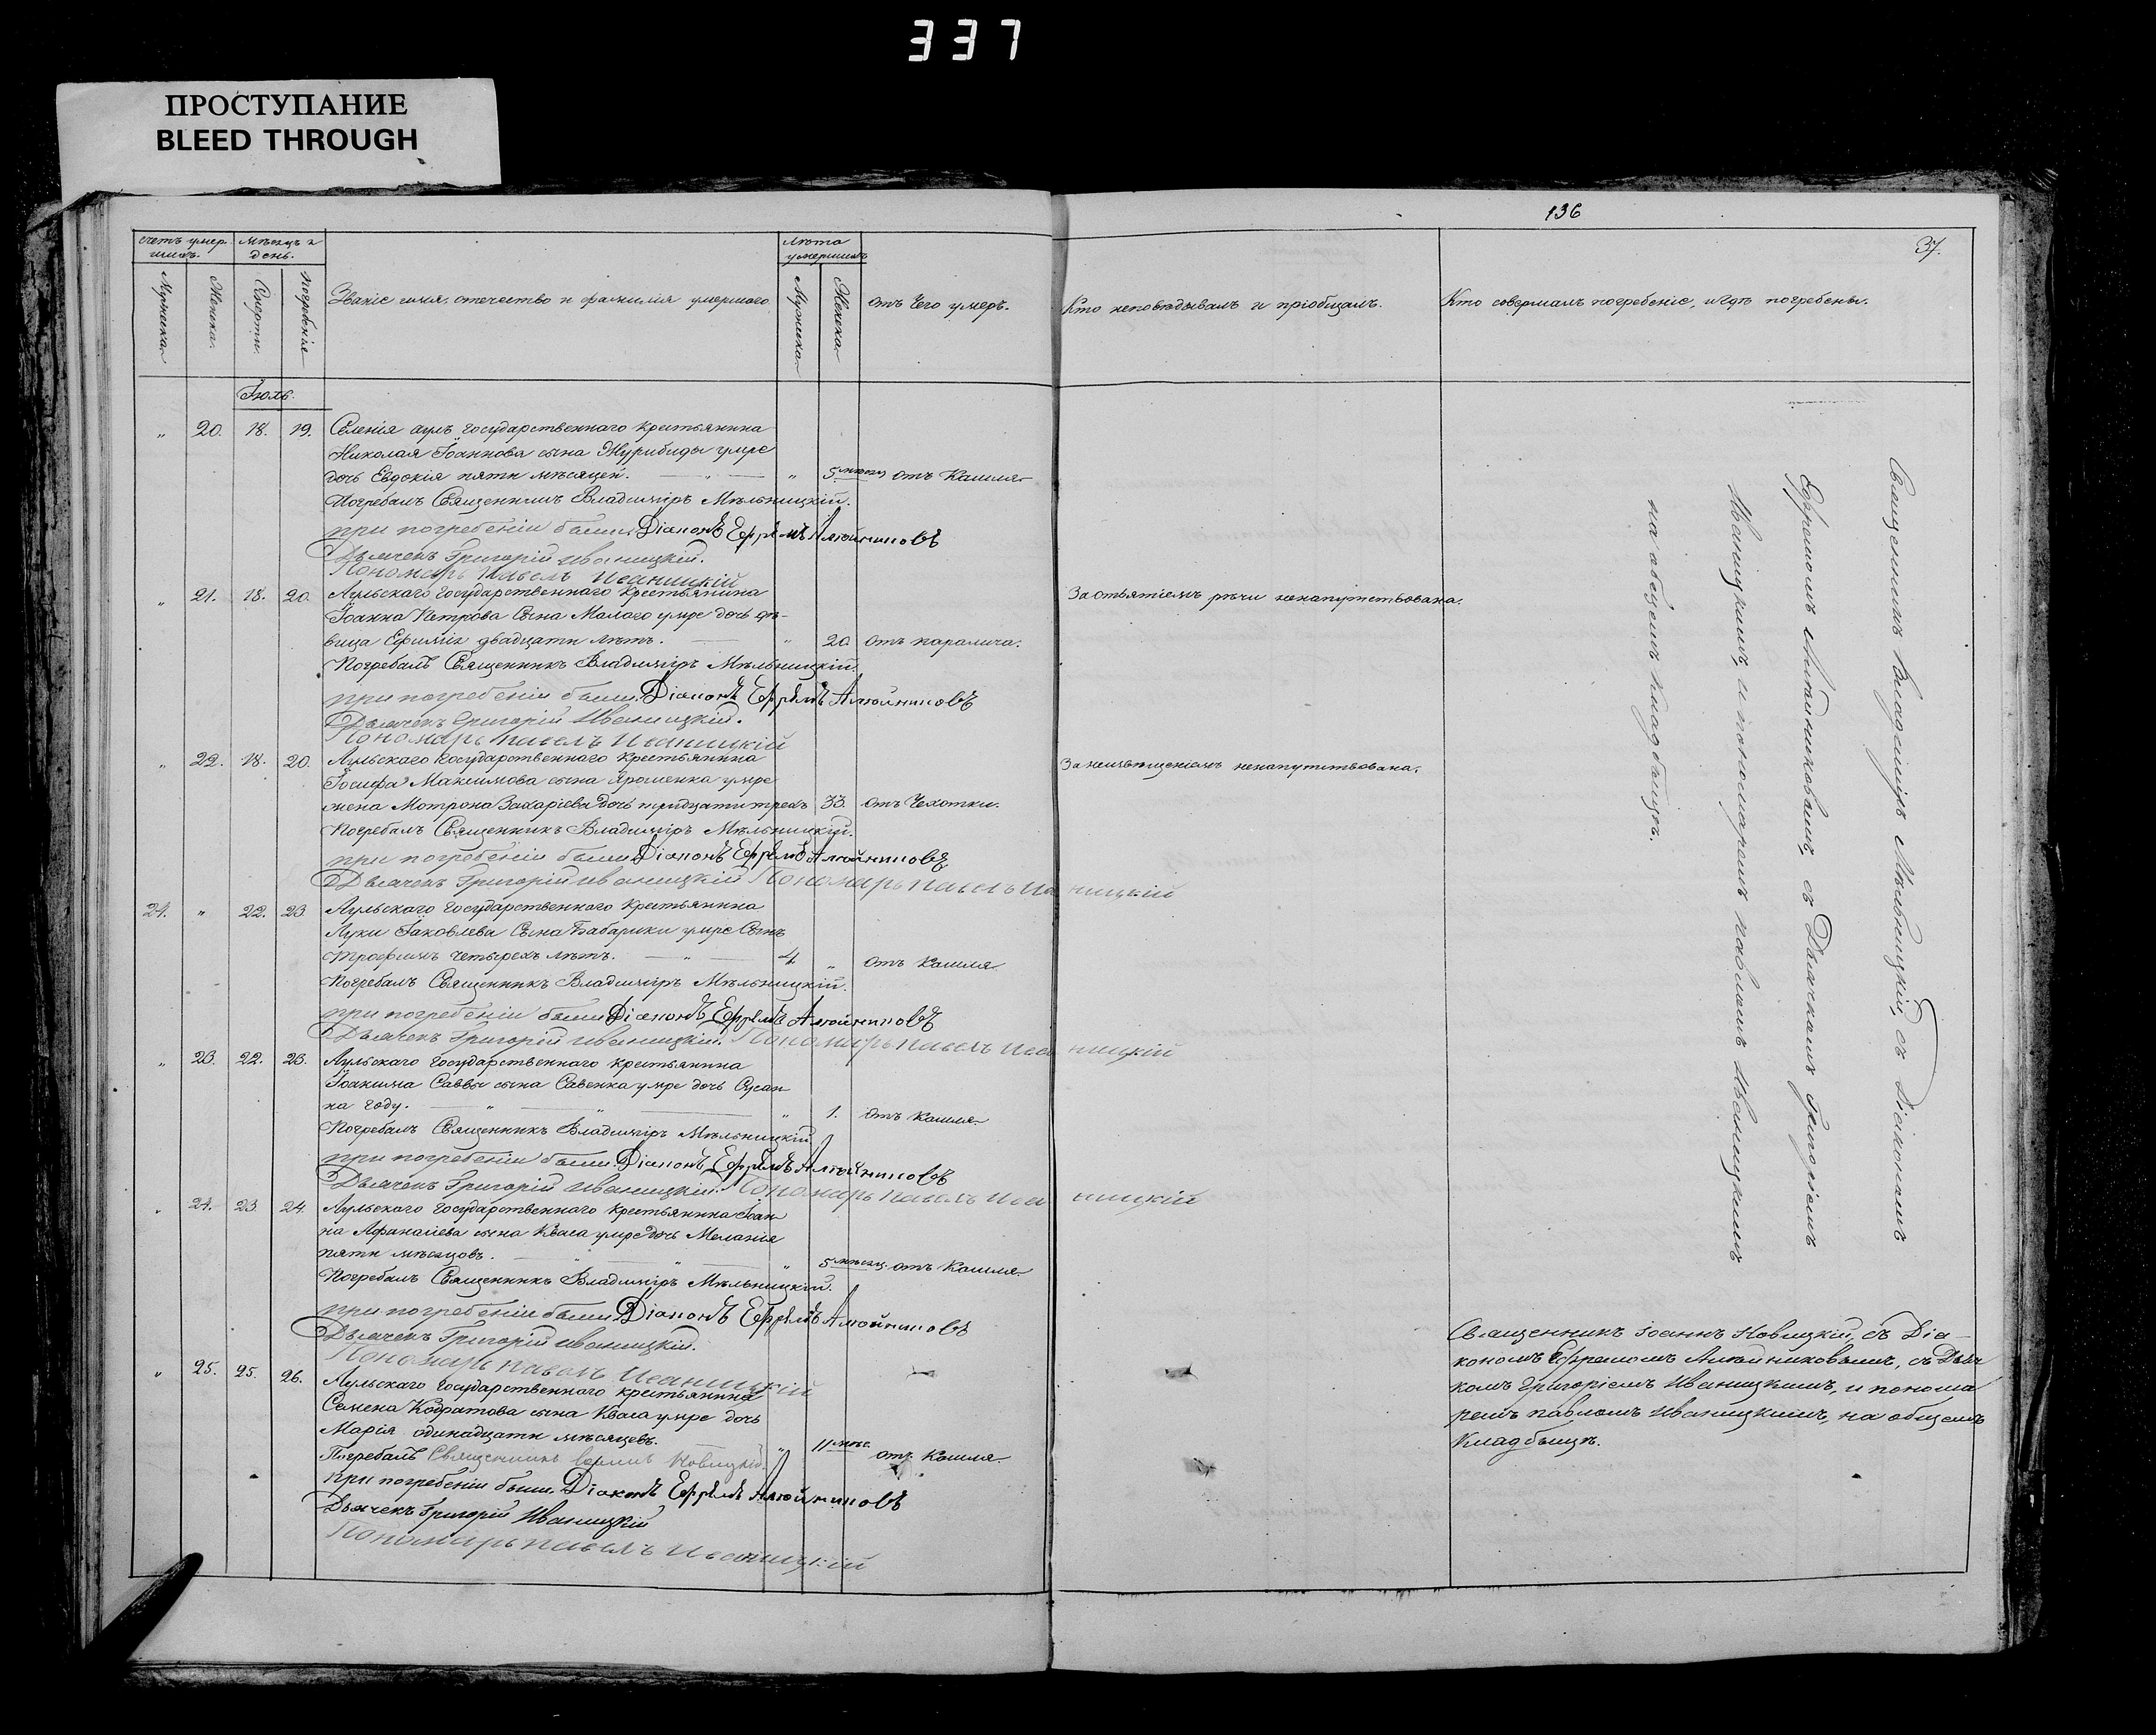 337
ПРОСТУПАНИЕ
BLEED THROUGH
136
37.
счетъ умер-
шихъ.
Мѣсяцъ и
день.
Мужеска.
Женска.
Смерти.
Погребенія
Званіе имя, отечество и фамилія умершаго
лѣта
умершихъ
Мужеска.
Женска.
отъ Чего умеръ.
Кто исповѣдывалъ и пріобщалъ.
Кто совершалъ погребеніе, и гдѣ погребены.
Іюль.
„ 20. 18. 19. Селенія аулъ государственнаго крестьянина
Николая Іоаннова сына Журибиды умре
дочь Евдокія пяти мѣсяцей. „ „ 5 мѣсяц отъ Кашля
Погребалъ Священникъ Владимиръ Мѣльницкій.
при погребеніи были Діаконъ Ефремъ Алтойниковъ
Дьячекъ Григорій Иваницкій.
Пономарь Павелъ Иваницкій
„ 21. 18. 20. Аульскаго государственнаго крестьянина
Іоанна Петрова сына Малого умре дочь дѣ-
вица Ефимія двадцати лѣтъ. „ 20 отъ паралича.
За отьятіемъ рѣчи ненапутствована.
Погребалъ Священникъ Владимиръ Мѣльницкій.
при погребеніи были Діаконъ Ефремъ Алтойниковъ
Дьячекъ Григорій Иваницкій.
Пономарь Павелъ Иваницкій
„ 22. 18. 20. Аульскаго государственнаго крестьянина
Іосифа Максимова сына Ярошенка умре
жена Мотрона Захаріева дочь тридцати трехъ 33. отъ Чехотки.
За неизвѣщеніемъ ненапутствована.
Погребалъ Священникъ Владимиръ Мѣльницкій.
при погребеніи были Діаконъ Ефремъ Алтойниковъ
Дьячекъ Григорій Иваницкій Пономарь Павелъ Иваницкій
21. „ 22. 23. Аульскаго государственнаго крестьянина
Луки Іаковлева Сына Бабарики умре Сынъ
Трофимъ четырехъ лѣтъ. „ 4. „ отъ Кашля
Погребалъ Священникъ Владимиръ Мѣльницкій.
при погребеніи были Діаконъ Ефремъ Алтойниковъ
Дьячекъ Григорій Иваницкій. Пономарь Павелъ Иваницкій
„ 23. 22. 23. Аульскаго государственнаго крестьянина
Іоакима Саввы сына Савенка умре дочь Сусан
на году. „ „ „ 1. отъ Кашля
Погребалъ Священникъ Владимиръ Мѣльницкій.
при погребеніи были Діаконъ Ефремъ Алтойниковъ
Дьячекъ Григорій Иваницкій. Пономарь Павелъ Иваницкій
„ 24. 23. 24. Аульскаго государственнаго крестьянина Іоан
на Афанасіева сына Кваса умре дочь Меланія
пяти мѣсяцовъ. „ „ 5 мѣсяц. отъ Кашля
Погребалъ Священникъ Владимиръ Мѣльницкій.
при погребеніи были Діаконъ Ефремъ Алтойниковъ
Дьячекъ Григорій Иваницкій.
Пономарь Павелъ Иваницкій
„ 25. 25. 26. Аульскаго государственнаго крестьянина
Семена Кодратова сына Кваса умре дочь
Марія одинадцати мѣсяцевъ. „ 11 мѣс. отъ Кашля
Погребалъ Священникъ Іоаннъ Новицкій
при погребеніи были Діаконъ Ефремъ Алтойниковъ
Дьячекъ Григорій Иваницкій
Пономарь Павелъ Иваницкій
Священникъ Владимиръ Мѣльницкій, съ Діакономъ
Ефремомъ Алтойниковымъ, съ Дьячкомъ Григоріемъ
Иваницкимъ, и пономаремъ Павломъ Иваницкимъ
на общемъ кладбищѣ.
Священникъ Іоаннъ Новицкій, съ Діа-
кономъ Ефремомъ Алтойниковымъ, съ Дьяч
комъ Григоріемъ Иваницкимъ, и понома
ремъ Павломъ Иваницкимъ, на общемъ
Кладбищѣ.